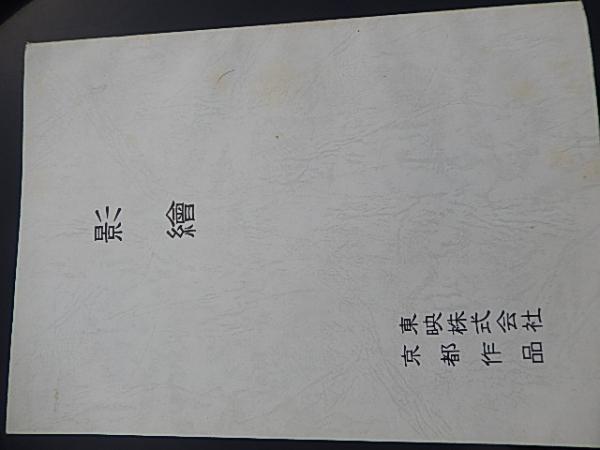 影繪
東映株式会社
京都作品